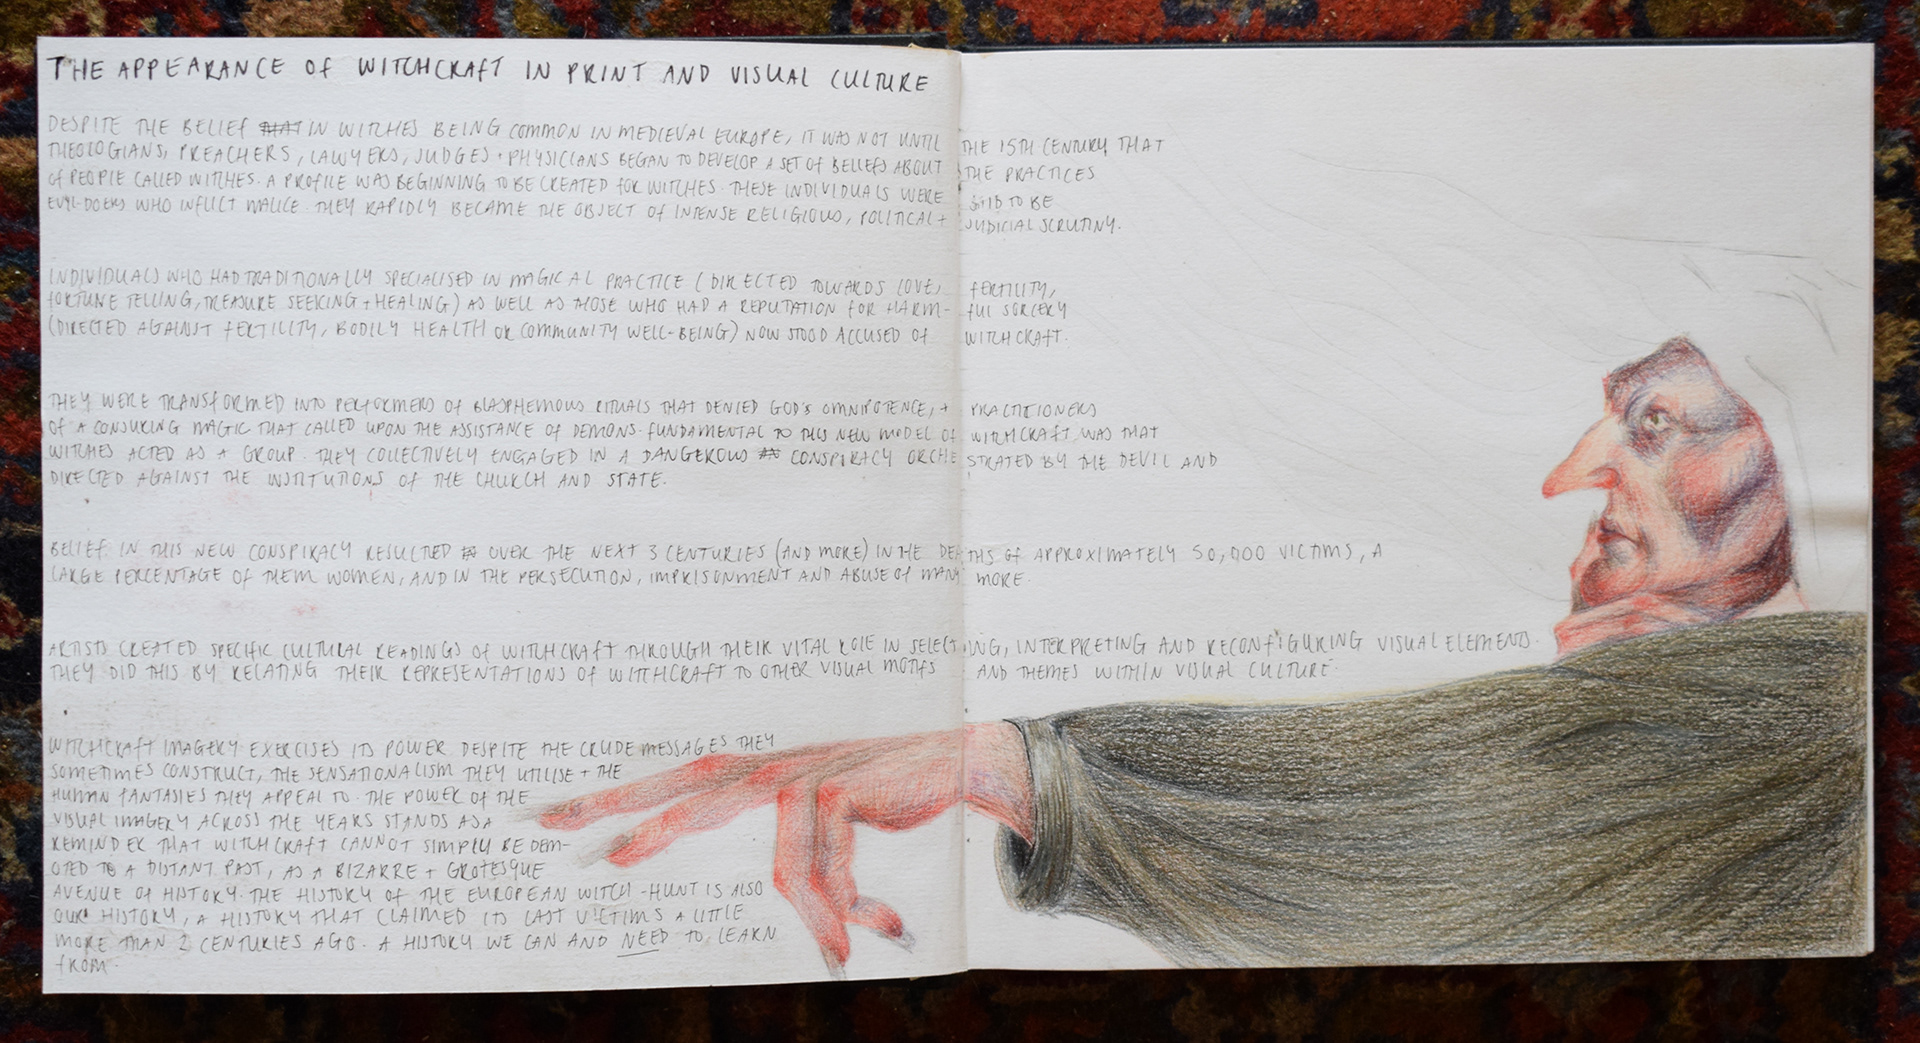 THE APPEARANCE OF WITCHCRAFT IN PRINT AND VISUAL CULTURE
DESPITE THE BELIEF THAT IN WITCHES BEING COMMON IN MEDIEVAL EUROPE, IT WAS NOT UNTIL THE 15TH CENTURY THAT
THEOLOGIANS, PREACHERS, LAWYERS, JUDGES + PHYSICIANS BEGAN TO DEVELOP A SET OF BELIEFS ABOUT THE PRACTICES
OF PEOPLE CALLED WITCHES. A PROFILE WAS BEGINNING TO BE CREATED FOR WITCHES. THESE INDIVIDUALS WERE SAID TO BE
EVIL-DOERS WHO INFLICT MALICE. THEY RAPIDLY BECAME THE OBJECT OF INTENSE RELIGIOUS, POLITICAL + JUDICIAL SCRUTINY.
INDIVIDUALS WHO HAD TRADITIONALLY SPECIALISED IN MAGICAL PRACTICE (DIRECTED TOWARDS LOVE, FERTILITY,
FORTUNE TELLING, TREASURE SEEKING + HEALING) AS WELL AS THOSE WHO HAD A REPUTATION FOR HARM- FUL SORCERY
(DIRECTED AGAINST FERTILITY, BODILY HEALTH OR COMMUNITY WELL-BEING) NOW STOOD ACCUSED OF WITCHCRAFT.
THEY WERE TRANSFORMED INTO PERFORMERS OF BLASPHEMOUS RITUALS THAT DENIED GOD'S OMNIPOTENCE, + PRACTITIONERS
OF A CONJURING MAGIC THAT CALLED UPON THE ASSISTANCE OF DEMONS. FUNDAMENTAL TO THIS NEW MODEL OF WITCHCRAFT WAS THAT
WITCHES ACTED AS A GROUP. THEY COLLECTIVELY ENGAGED IN A DANGEROUS CONSPIRACY ORCHESTRATED BY THE DEVIL AND
DIRECTED AGAINST THE INSTITUTIONS OF THE CHURCH AND STATE.
BELIEF IN THIS NEW CONSPIRACY RESULTED OVER THE NEXT 3 CENTURIES (AND MORE) IN THE DEATHS OF APPROXIMATELY 50,000 VICTIMS, A
LARGE PERCENTAGE OF THEM WOMEN, AND IN THE PERSECUTION, IMPRISONMENT AND ABUSE OF MANY MORE.
ARTISTS CREATED SPECIFIC CULTURAL READINGS OF WITCHCRAFT THROUGH THEIR VITAL ROLE IN SELECTING, INTERPRETING AND RECONFIGURING VISUAL ELEMENTS.
THEY DID THIS BY RELATING THEIR REPRESENTATIONS OF WITCHCRAFT TO OTHER VISUAL MOTIFS AND THEMES WITHIN VISUAL CULTURE.
WITCHCRAFT IMAGERY EXERCISES ITS POWER DESPITE THE CRUDE MESSAGES THEY
SOMETIMES CONSTRUCT, THE SENSATIONALISM THEY UTILISE + THE
HUMAN FANTASIES THEY APPEAL TO. THE POWER OF THE
VISUAL IMAGERY ACROSS THE YEARS STANDS AS A
REMINDER THAT WITCHCRAFT CANNOT SIMPLY BE DEM-
OTED TO A DISTANT PAST, AS A BIZARRE + GROTESQUE
AVENUE OF HISTORY. THE HISTORY OF THE EUROPEAN WITCH-HUNT IS ALSO
OUR HISTORY, A HISTORY THAT CLAIMED ITS LAST VICTIMS A LITTLE
MORE THAN 2 CENTURIES AGO. A HISTORY WE CAN AND NEED TO LEARN
FROM.